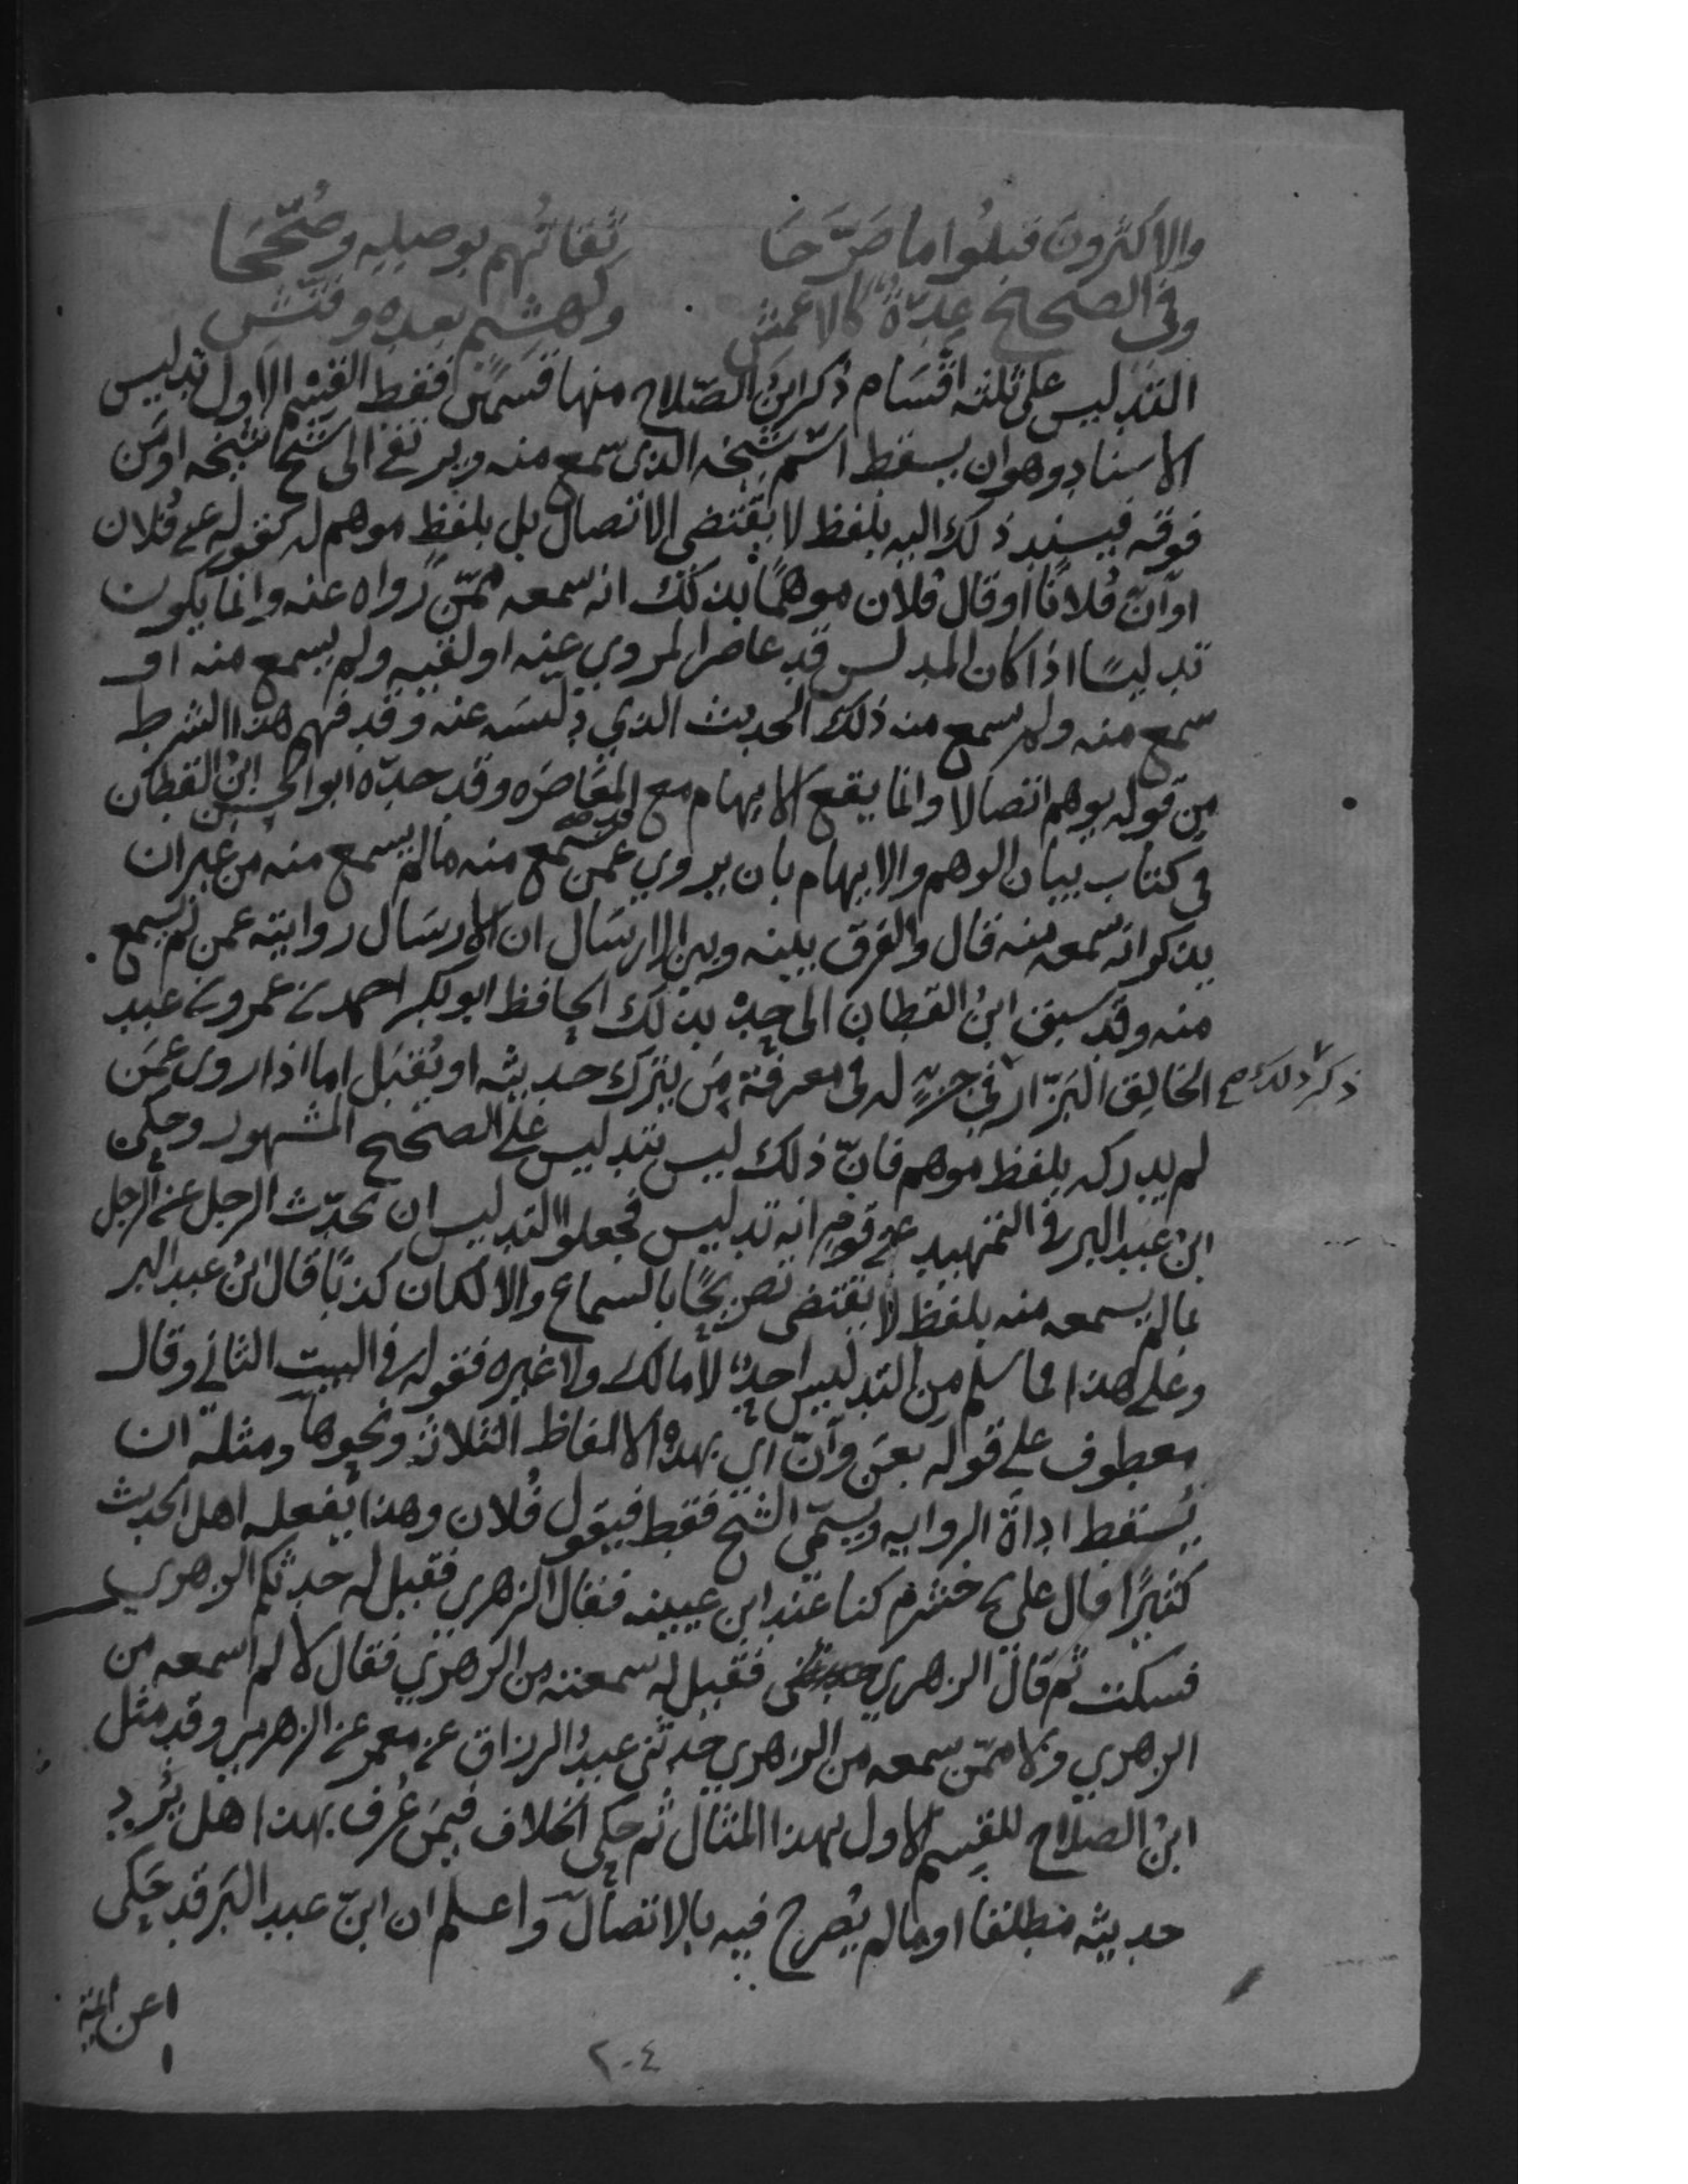 والاكثرون قبلوا ما صَرَّحَا ثقاتُهم بوصله وصُحّحَا
وفى الصحيح عدّةٌ كالاعمش وكهشيم بعده وفتّش
التدليس على ثلثه اقسَام ذكر ابنُ الصّلاح منها قسمَين فقط القسم الاول تدليس
الاسناد وهو ان يسقط اسم شيخه الذى سمع منه ويرتقى الى شيخ شيخه او مَن
فوقه فيسند ذلك اليه بلفظ لا يقتضى الاتصال بل بلفظٍ موهم له كقوله عن فُلان
او انّ فُلانًا او قال فُلان موهمًا بذلك انه سمعه ممّن رواه عنه وانما يكون
تدليسًا اذا كان المدلس قد عاصر المروي عنه او لقيه ولم يسمع منه او
سمع منه ولم يسمع منه ذلك الحديث الذي دلّسَه عنه وقد فهم هذا الشرط
مِن قوله يوهم اتصالا وانما يقع الايهام مع المعَاصَره وقد حدّه ابو الحسن ابنُ القطان
فى كتاب بيان الوهم والايهام بان يروي عمن قد سمع منه مالم يسمع منه من غير ان
يذكر انه سمعه منه قال والفرق بينه وبين الارسَال ان الارسَال روايته عمن لم يسمع
منه وقد سبق ابنُ القطان الى حدّه بذلك الحافظ ابو بكر احمد بن عمرو بن عبد
الخالق البَزّار فى جزءٍ له فى معرفة مَن يترك حديثه او يُقبَل اما اذا روى عمَن
ذكر ذلك صح
لم يدركه بلفظ موهم فانّ ذلك ليس بتدليس على الصحيح المشهور وحكى
ابنُ عبد البر فى التمهيد عن قوم انه تدليس فجعلوا التدليس ان يحدّث الرجل عن الرجل
بما لم يسمعه منه بلفظ لا يقتضى تصريحًا بالسماع والا لكان كذبًا قال ابنُ عبد البر
وعلى هذا فما سلم من التدليس احدٌ لا مالك ولا غيره فقوله فى البيت الثاني وقال
معطوف على قوله بعَن وأنّ اي بهذه الالفاظ الثلاثه ونحوها ومثله ان
يُسقط اداةَ الروايه ويسمّي الشيخ فقط فيقول فُلان وهذا يفعله اهل الحديث
كثيرًا قال على بن خشرم كنا عند ابن عيينه فقال الزهري فقيل له حدثكم الزهري
فسكت ثم قال الزهري فقيل له سمعته من الزهري فقال لا لم اسمعه من
الزهري ولا ممّن سمعه من الزهري حدثنى عبدُ الرزاق عن معمر عن الزهري وقد مثل
ابنُ الصلاح للقسم الاول بهذا المثال ثم حكى الخلاف فيمَن عُرف بهذا هل يُرد
حديثه مطلقا او مالم يُصرح فيه بالاتصال واعلم ان ابنَ عبد البَر قد حَكى
عن ائمة
٢٠٤